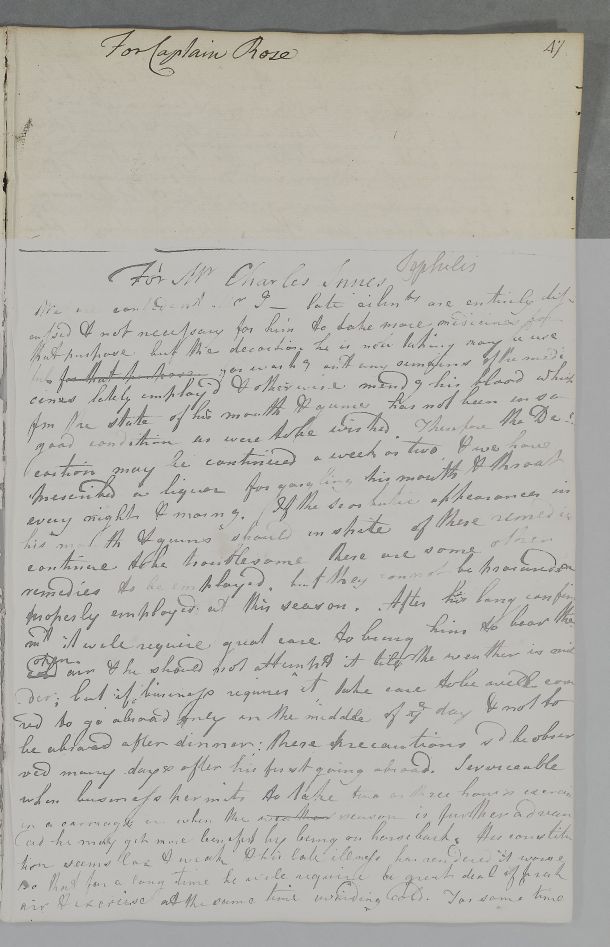 For Captain Rose
47
For Mr Charles Innes Syphilis
We are confident late ailmts are entirely dif-
cussed & not necessary for him to take more medicines for
that purpose but the decoction he is now taking may
for that purpose away any remains of the medi
cines lately employ'd & otherwise mendg his blood which
fm the state of his mouth & gums has not been in so
good condition as were to be wished Therefore the De-
coction may be continued a week or two, & we have
prescribed a liquor for gargling his mouth & throat
every night & morng. If the scorbutic appearances in
his mouth & gums should in spite of these remedies
continue to be troublesome there are some other
remedies to be employed, but they cannot be procured or
properly employed at this season. After his long confine
mt it will require great care to bring him to bear the
open air & he should not attempt it till the weather is mil
der; but if business requires it take care to be well cove
red to go abroad only in the middle of ye day & not to
be abroad after dinner; these precautions sd be obser
ved many days after his first going abroad. Serviceable
when business permits to take two or three hours exercise
in a carriage or when the weather season is further advan
ced he may get more benefit by being on horseback, His constitu
tion seems lax & weak & this late illness has rendered it worse
so that for a long time he will require a great deal of fresh
air & exercise at the same time avoiding cold. For some time